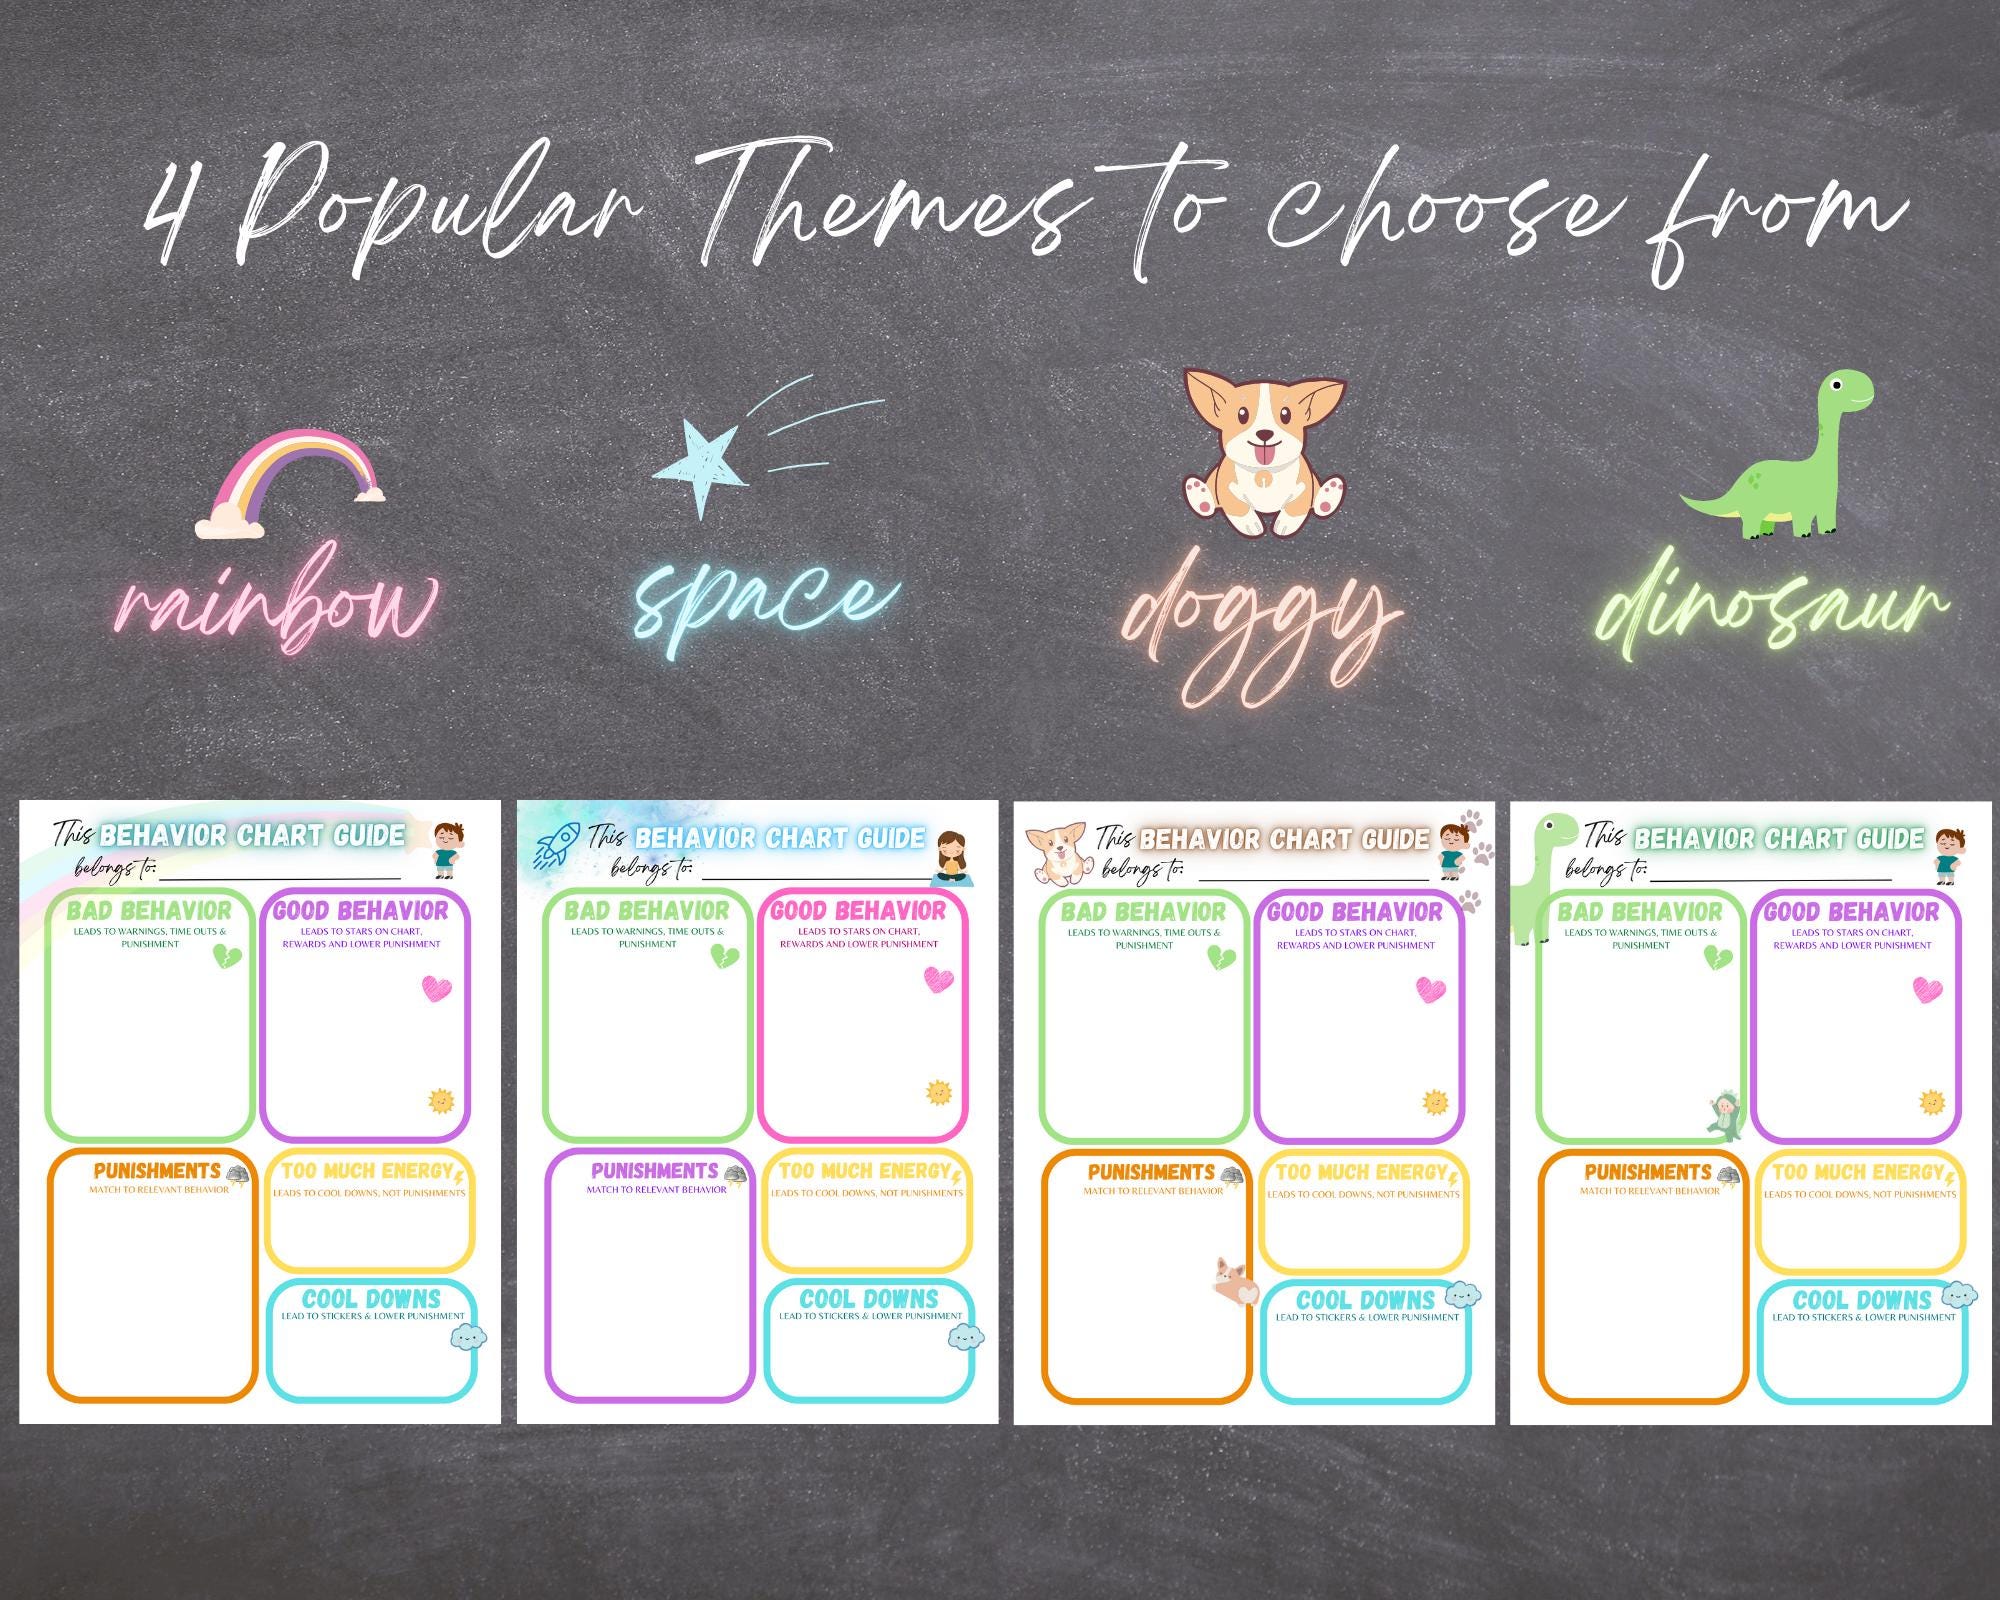 4 Popular Themes to choose from
rainbow
space
doggy
dinosaur
This BEHAVIOR CHART GUIDE
belongs to:
BAD BEHAVIOR
LEADS TO WARNINGS, TIME OUTS &
PUNISHMENT
GOOD BEHAVIOR
LEADS TO STARS ON CHART,
REWARDS AND LOWER PUNISHMENT
PUNISHMENTS
MATCH TO RELEVANT BEHAVIOR
TOO MUCH ENERGY
LEADS TO COOL DOWNS, NOT PUNISHMENTS
COOL DOWNS
LEAD TO STICKERS & LOWER PUNISHMENT
This BEHAVIOR CHART GUIDE
belongs to:
BAD BEHAVIOR
LEADS TO WARNINGS, TIME OUTS &
PUNISHMENT
GOOD BEHAVIOR
LEADS TO STARS ON CHART,
REWARDS AND LOWER PUNISHMENT
PUNISHMENTS
MATCH TO RELEVANT BEHAVIOR
TOO MUCH ENERGY
LEADS TO COOL DOWNS, NOT PUNISHMENTS
COOL DOWNS
LEAD TO STICKERS & LOWER PUNISHMENT
This BEHAVIOR CHART GUIDE
belongs to:
BAD BEHAVIOR
LEADS TO WARNINGS, TIME OUTS &
PUNISHMENT
GOOD BEHAVIOR
LEADS TO STARS ON CHART,
REWARDS AND LOWER PUNISHMENT
PUNISHMENTS
MATCH TO RELEVANT BEHAVIOR
TOO MUCH ENERGY
LEADS TO COOL DOWNS, NOT PUNISHMENTS
COOL DOWNS
LEAD TO STICKERS & LOWER PUNISHMENT
This BEHAVIOR CHART GUIDE
belongs to:
BAD BEHAVIOR
LEADS TO WARNINGS, TIME OUTS &
PUNISHMENT
GOOD BEHAVIOR
LEADS TO STARS ON CHART,
REWARDS AND LOWER PUNISHMENT
PUNISHMENTS
MATCH TO RELEVANT BEHAVIOR
TOO MUCH ENERGY
LEADS TO COOL DOWNS, NOT PUNISHMENTS
COOL DOWNS
LEAD TO STICKERS & LOWER PUNISHMENT